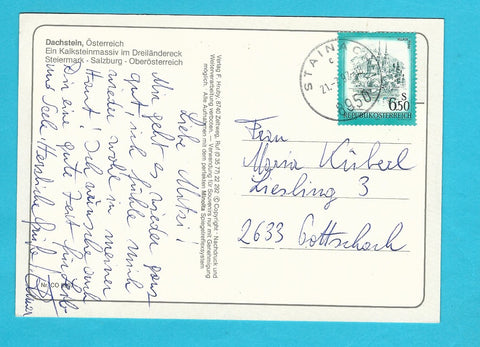 Dachstein, Österreich
Ein Kalksteinmassiv im Dreiländereck
Steiermark - Salzburg - Oberösterreich
Liebe Mitzi!
Mir geht es wieder ganz
gut, ich fühle mich
wieder wohl in meiner
Haut! Ich wünsche auch
Dir eine gute Zeit für Leib
und Seele, Herzliche Grüße,
Verlag F. Hruby, 8740 Zeltweg, Ruf (0 35 77) 22 292 © Copyright - Nachdruck und
Weiterverarbeitung verboten. — Verwendung für Souvenirs nur mit Genehmigung
möglich. Alle Aufnahmen mit dem perfekten Minolta Spiegelreflexsystem
STAINACH
8950
S
6.50
REPUBLIK ÖSTERREICH
Frau
Maria Küberl
Liesling 3
2633 Gottschach